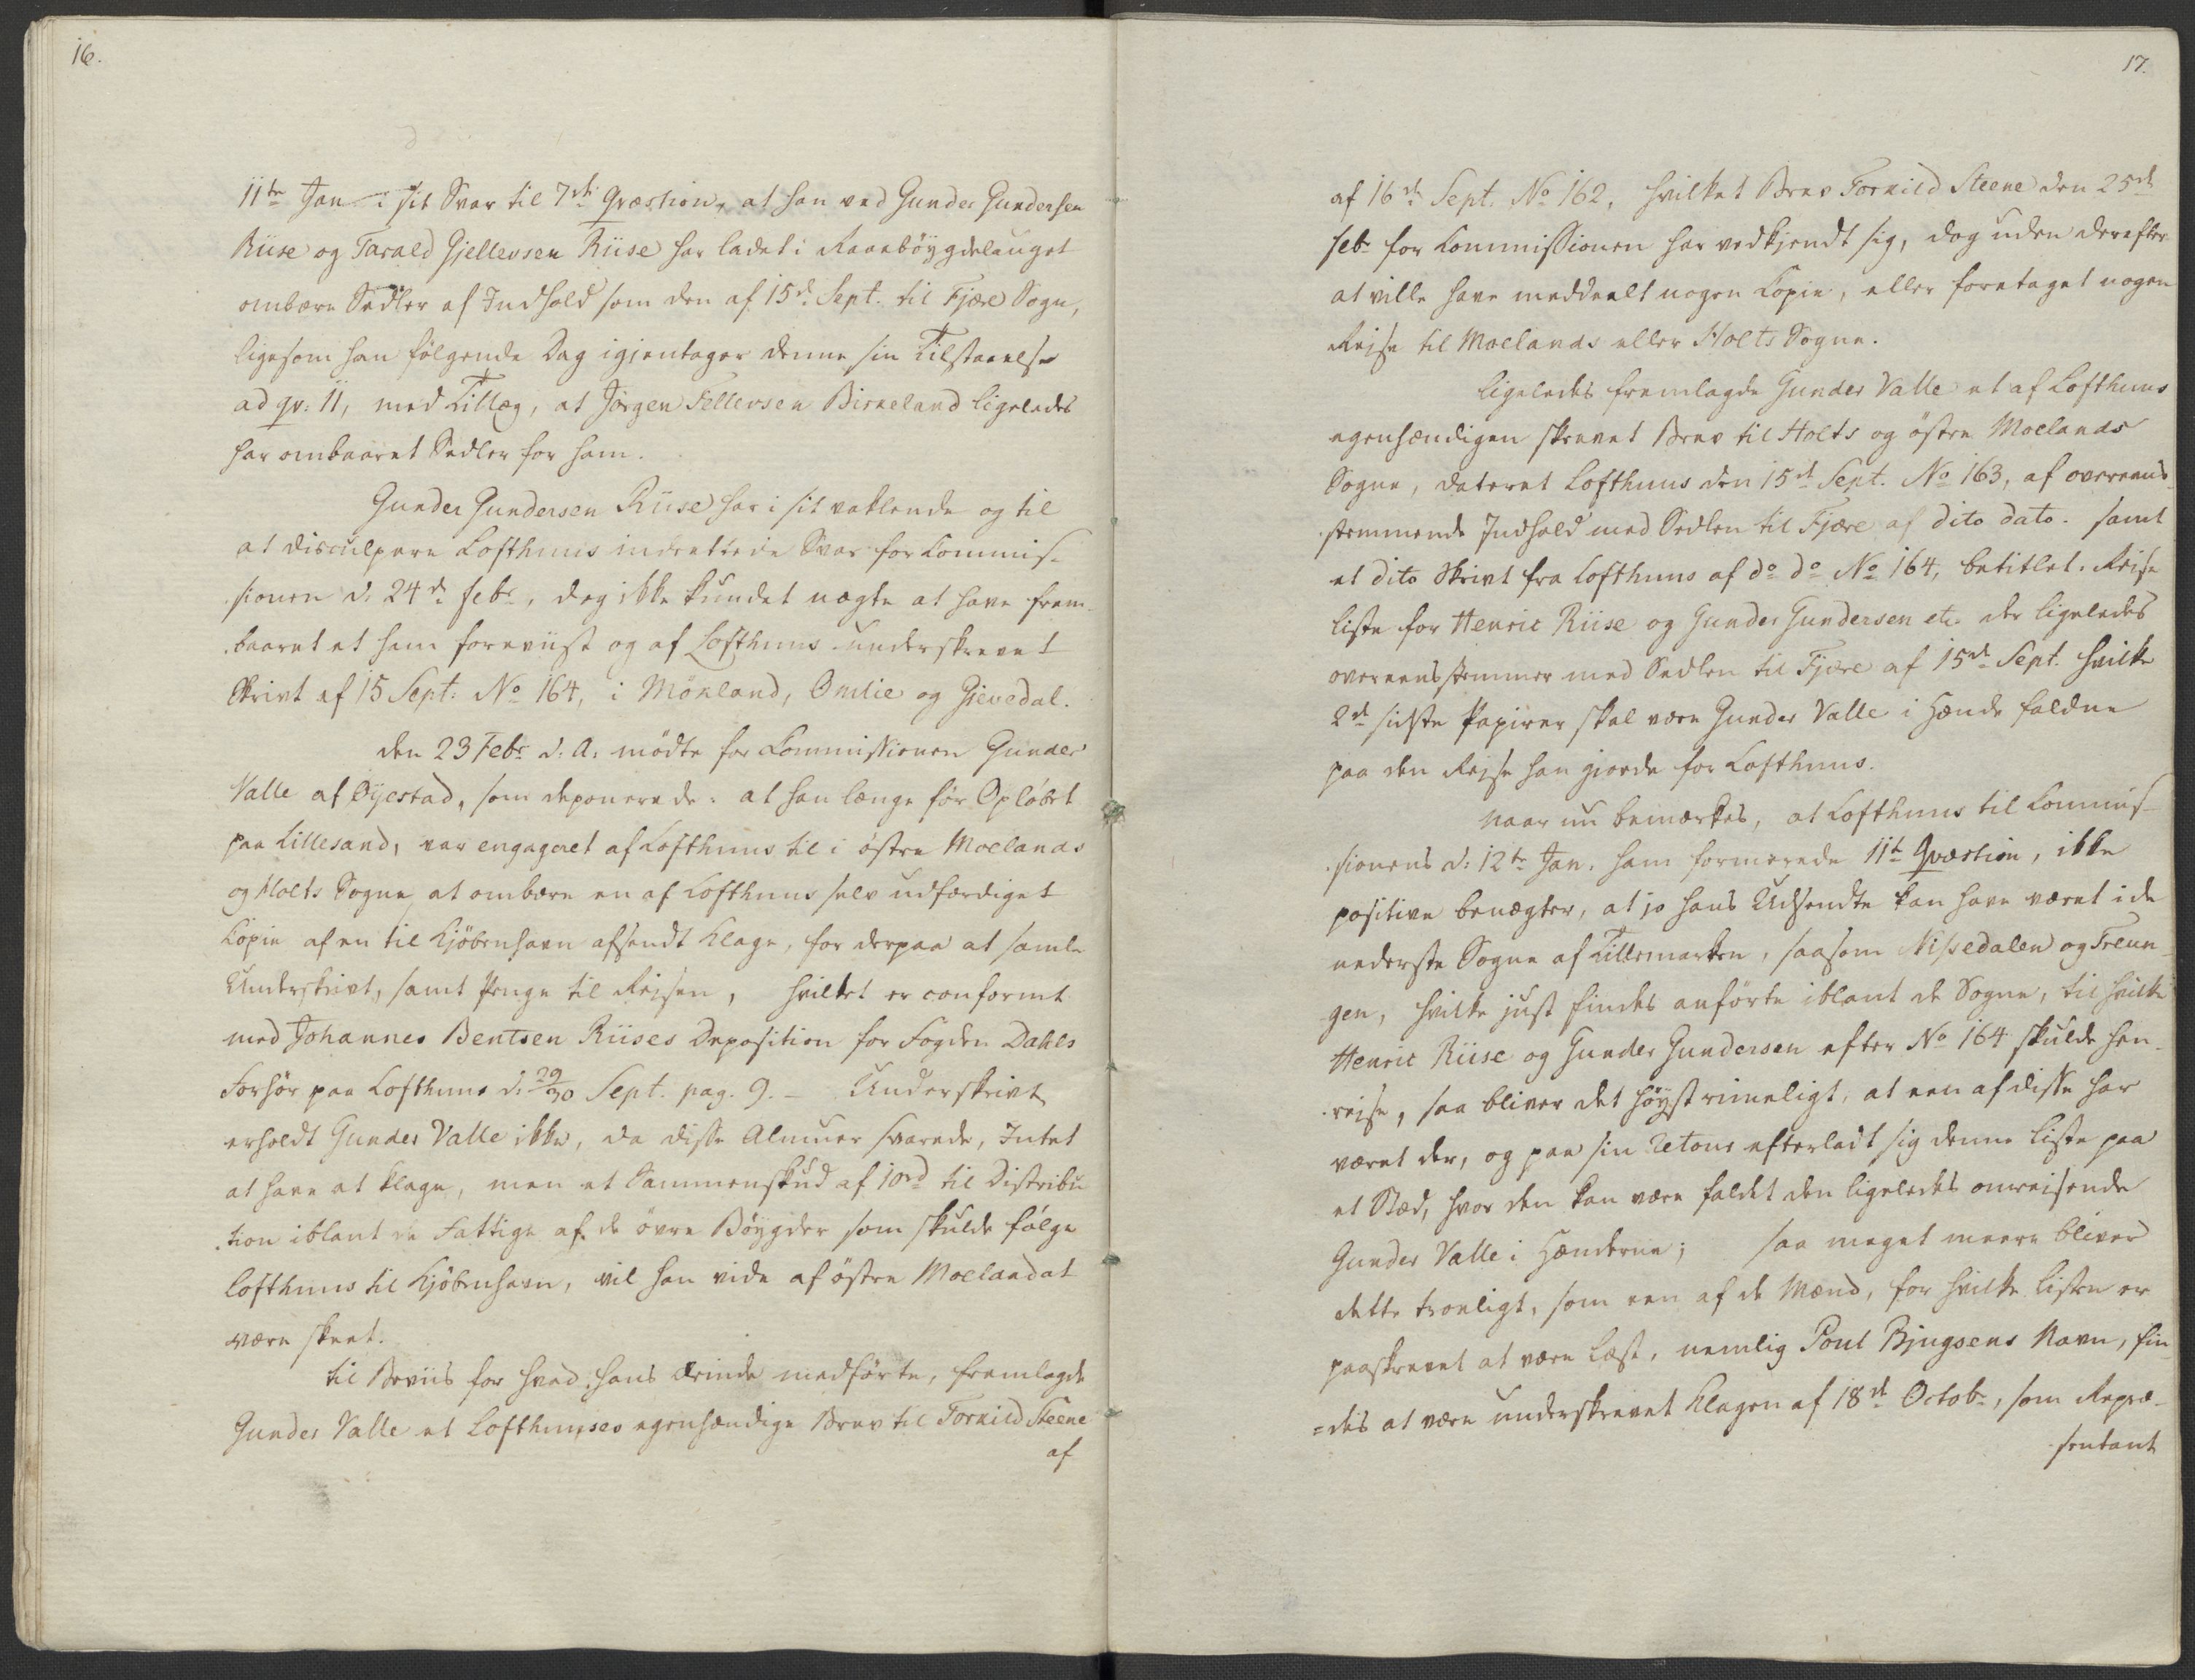 16.
11te Jan i sit Svar til 7de Qvæstion, at han ved Gunder Gundersen
Riise og Tarald Gjellevsen Riise har ladet i Raabøygdelauget
ombære Sedler af Indhold som den af 15de Sept. til Fjære Sogn,
ligesom han følgende Dag igjentager denne sin Tilstaaelse
ad qv: 11, med Tillæg, at Jørgen Tellevsen Birkeland ligeledes
har ombaaret Sedler for ham.
Gunder Gundersen Riise har i sit vaklende og til
at disculpere Lofthuus indrettede Svar for Commis-
sionen d. 24de Febr, dog ikke kundet nægte at have frem-
baaret et ham foreviist og af Lofthuus underskrevet
Skrivt af 15 Sept: No 164, i Mökland, Omlie og Gievedal.
den 23 Febr d: A: mödte for Commissionen Gunder
Valle af Öyestad, som deponerede: at han længe för Opløbet
paa Lillesand, var engageret af Lofthuus til i östre Moelands
og Holts Sogne at ombære en af Lofthuus selv udfærdiget
Copie af en til Kjöbenhavn afsendt Klage, for derpaa at samle
Underskrivt, samt Penge til Reisen, hvilket er conformt
med Johannes Bentsen Riises Deposition for Fogden Dahls
Forhör paa Lofthuus d. 29/30 Sept. pag. 9. - Underskrivt
erholdt Gunder Valle ikke, da disse Almuer svarede, Intet
at have at klage, men et Sammenskud af 10rd til Distribu
tion iblant de Fattige af de övre Böygder som skulde følge
Lofthuus til Kjöbenhavn, vil han vide af östre Moeland at
være skeet.
til Beviis for hvad hans Ærinde medførte, fremlagde
Gunder Valle et Lofthuuses egenhændige Brev til Torkild Steene
af
17.
af 16de Sept. No 162, hvilket Brev Torkild Steene den 25de
Febr for Commissionen har vedkjendt sig, dog uden derefter
at ville have meddeelt nogen Copie, eller foretaget nogen
Reise til Moelands eller Holts Sogne.
ligeledes fremlagde Gunder Valle et af Lofthuus
egenhændigen skrevet Brev til Holts og östre Moelands
Sogne, dateret Lofthuus den 15de Sept. No 163, af overeens-
stemmende Indhold med Sedlen til Fjære af dito dato. samt
et dito Skrivt fra Lofthuus af do do No 164, betitlet: Reise
liste for Henric Riise og Gunder Gundersen etc. der ligeledes
overeensstemmer med Sedlen til Fjære af 15de Sept. hvilke
2de sidste Papirer skal være Gunder Valle i Hænde faldne
paa den Reise han giorde for Lofthuus.
Naar nu bemærkes, at Lofthuus til Commis-
sionens d: 12te Jan. ham formerede 11te Qvæstion, ikke
positive benægter, at jo hans Udsendte kan have været i de
nederste Sogne af Tillemarken, saasom Nissedalen og Treun-
gen, hvilke just findes anförte iblant de Sogne, til hvilke
Henric Riise og Gunder Gundersen efter No 164 skulde hen-
reise, saa bliver det höyst rimeligt, at een af disse har
været der, og paa sin retour efterladt sig denne Liste paa
et Sted, hvor den kan være faldet den ligeledes omreisende
Gunder Valle i Hænderne; saa meget meere bliver
dette troeligt, som een af de Mænd, for hvilke Listen er
paaskrevet at være læst, nemlig Poul Bjugsens Navn, fin
=des at være underskrevet Klagen af 18de Octobr, som Repræ-
sentant